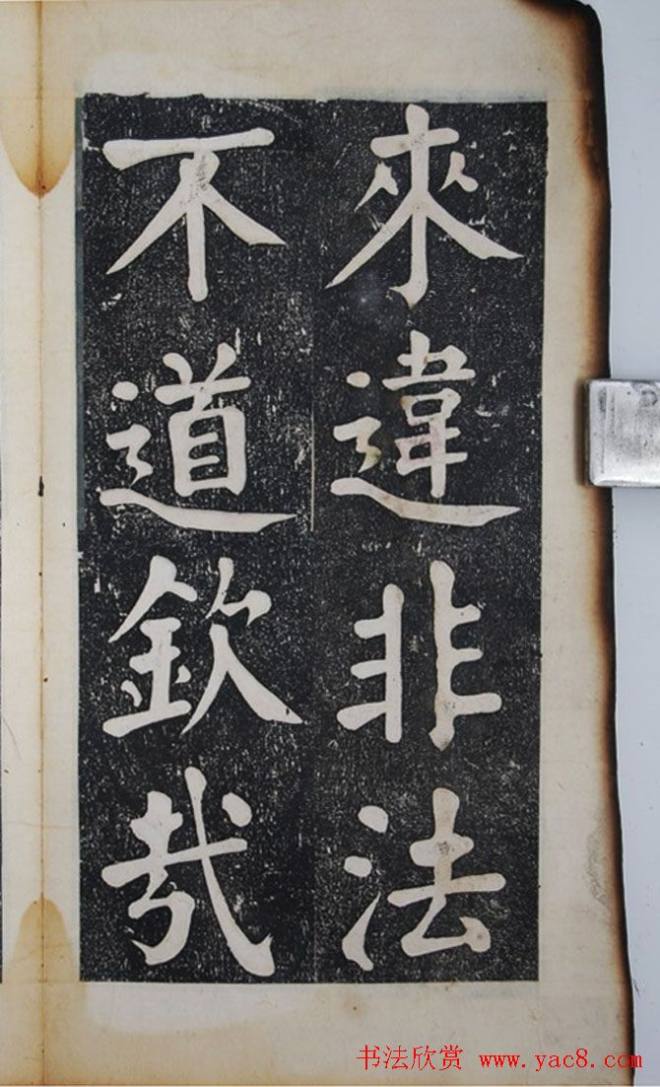 來違非法
不道欽哉
书法欣赏 www.yac8.com